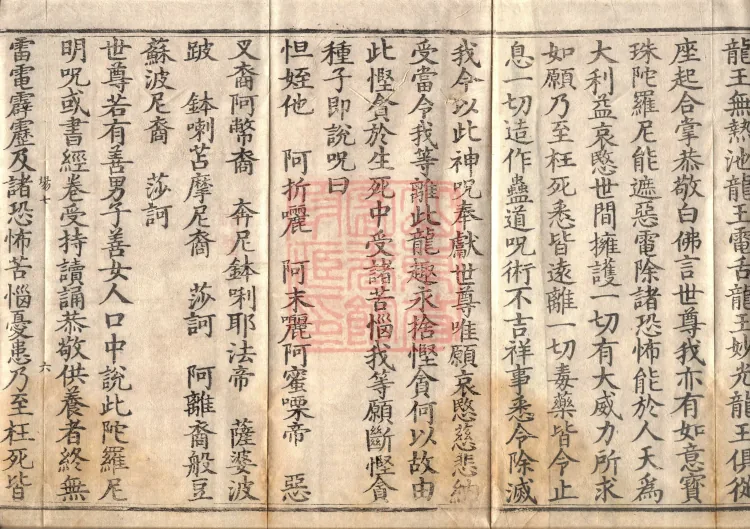 龍王無熱池龍王電舌龍王妙光龍王俱從
座起合掌恭敬白佛言世尊我亦有如意寶
珠陀羅尼能遮惡電除諸恐怖能於人天為
大利益哀愍世間擁護一切有大威力所求
如願乃至枉死悉皆遠離一切毒藥皆令止
息一切造作蠱道呪術不吉祥事悉令除滅
我今以此神呪奉獻世尊唯願哀愍慈悲納
受當令我等離此龍趣永捨慳貪何以故由
此慳貪於生死中受諸苦惱我等願斷慳貪
種子即說呪曰
怛姪他 阿折囇 阿末囇阿蜜㗚帝 惡
叉裔阿幣裔 奔尼鉢唎耶法帝 薩婆波
跛 鉢喇苫摩尼裔 莎訶 阿離裔般豆
蘇波尼裔 莎訶
世尊若有善男子善女人口中說此陀羅尼
明呪或書經卷受持讀誦恭敬供養者終無
場七 六
雷電霹靂及諸恐怖苦惱憂患乃至枉死皆